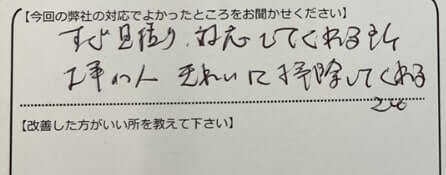 【今回の弊社の対応でよかったところをお聞かせください】
すぐ見積り、対応してくれる所
工事の人 きれいに掃除してくれる
【改善した方がいい所を教えて下さい】